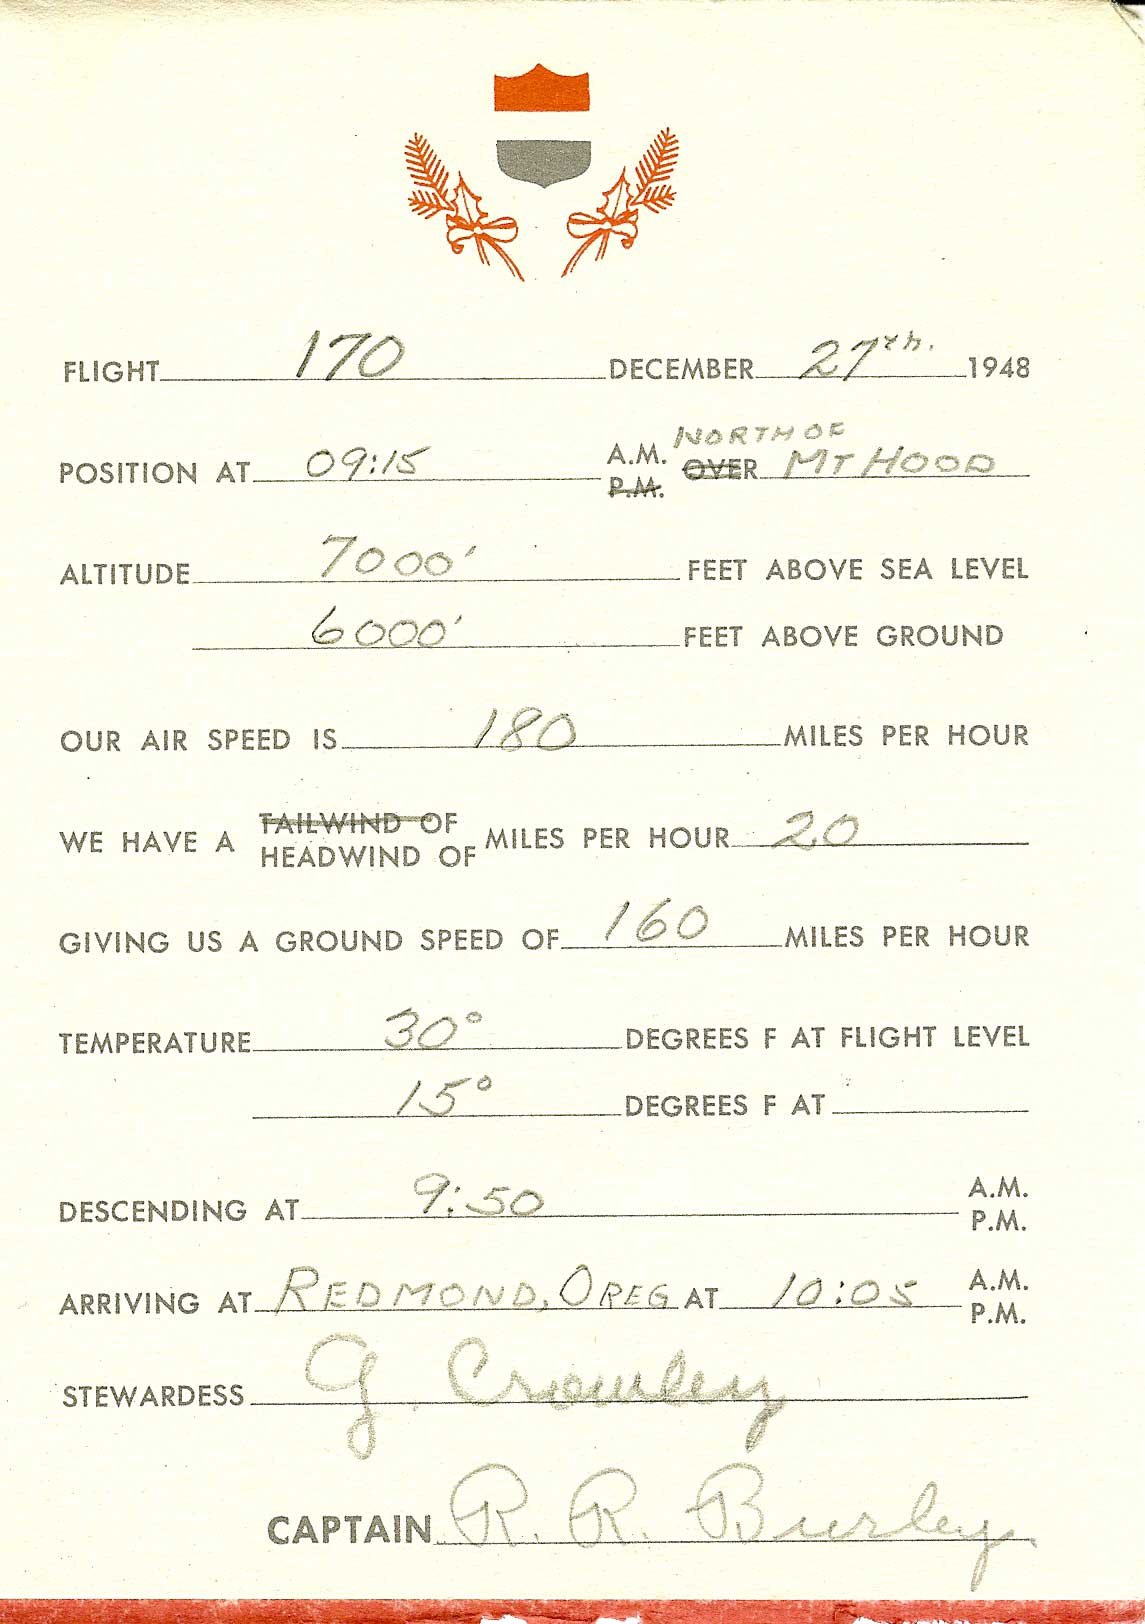 FLIGHT 170 DECEMBER 27th. 1948
NORTH OF
POSITION AT 09:15 A.M. P.M. OVER MT HOOD
ALTITUDE 7000' FEET ABOVE SEA LEVEL
6000' FEET ABOVE GROUND
OUR AIR SPEED IS 180 MILES PER HOUR
WE HAVE A TAILWIND OF HEADWIND OF MILES PER HOUR 20
GIVING US A GROUND SPEED OF 160 MILES PER HOUR
TEMPERATURE 30° DEGREES F AT FLIGHT LEVEL
15° DEGREES F AT
DESCENDING AT 9:50 A.M. P.M.
ARRIVING AT REDMOND, OREG AT 10:05 A.M. P.M.
STEWARDESS G Crowley
CAPTAIN R. R. Burley